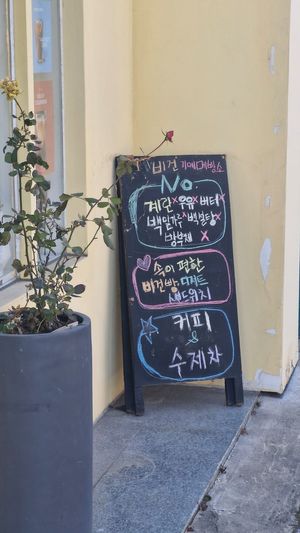 비건
No.
계란x우유x버터x
백밀가루x백설탕x
방부제x
속이 편한
비건빵 디저트
샌드위치
커피
&
수제차